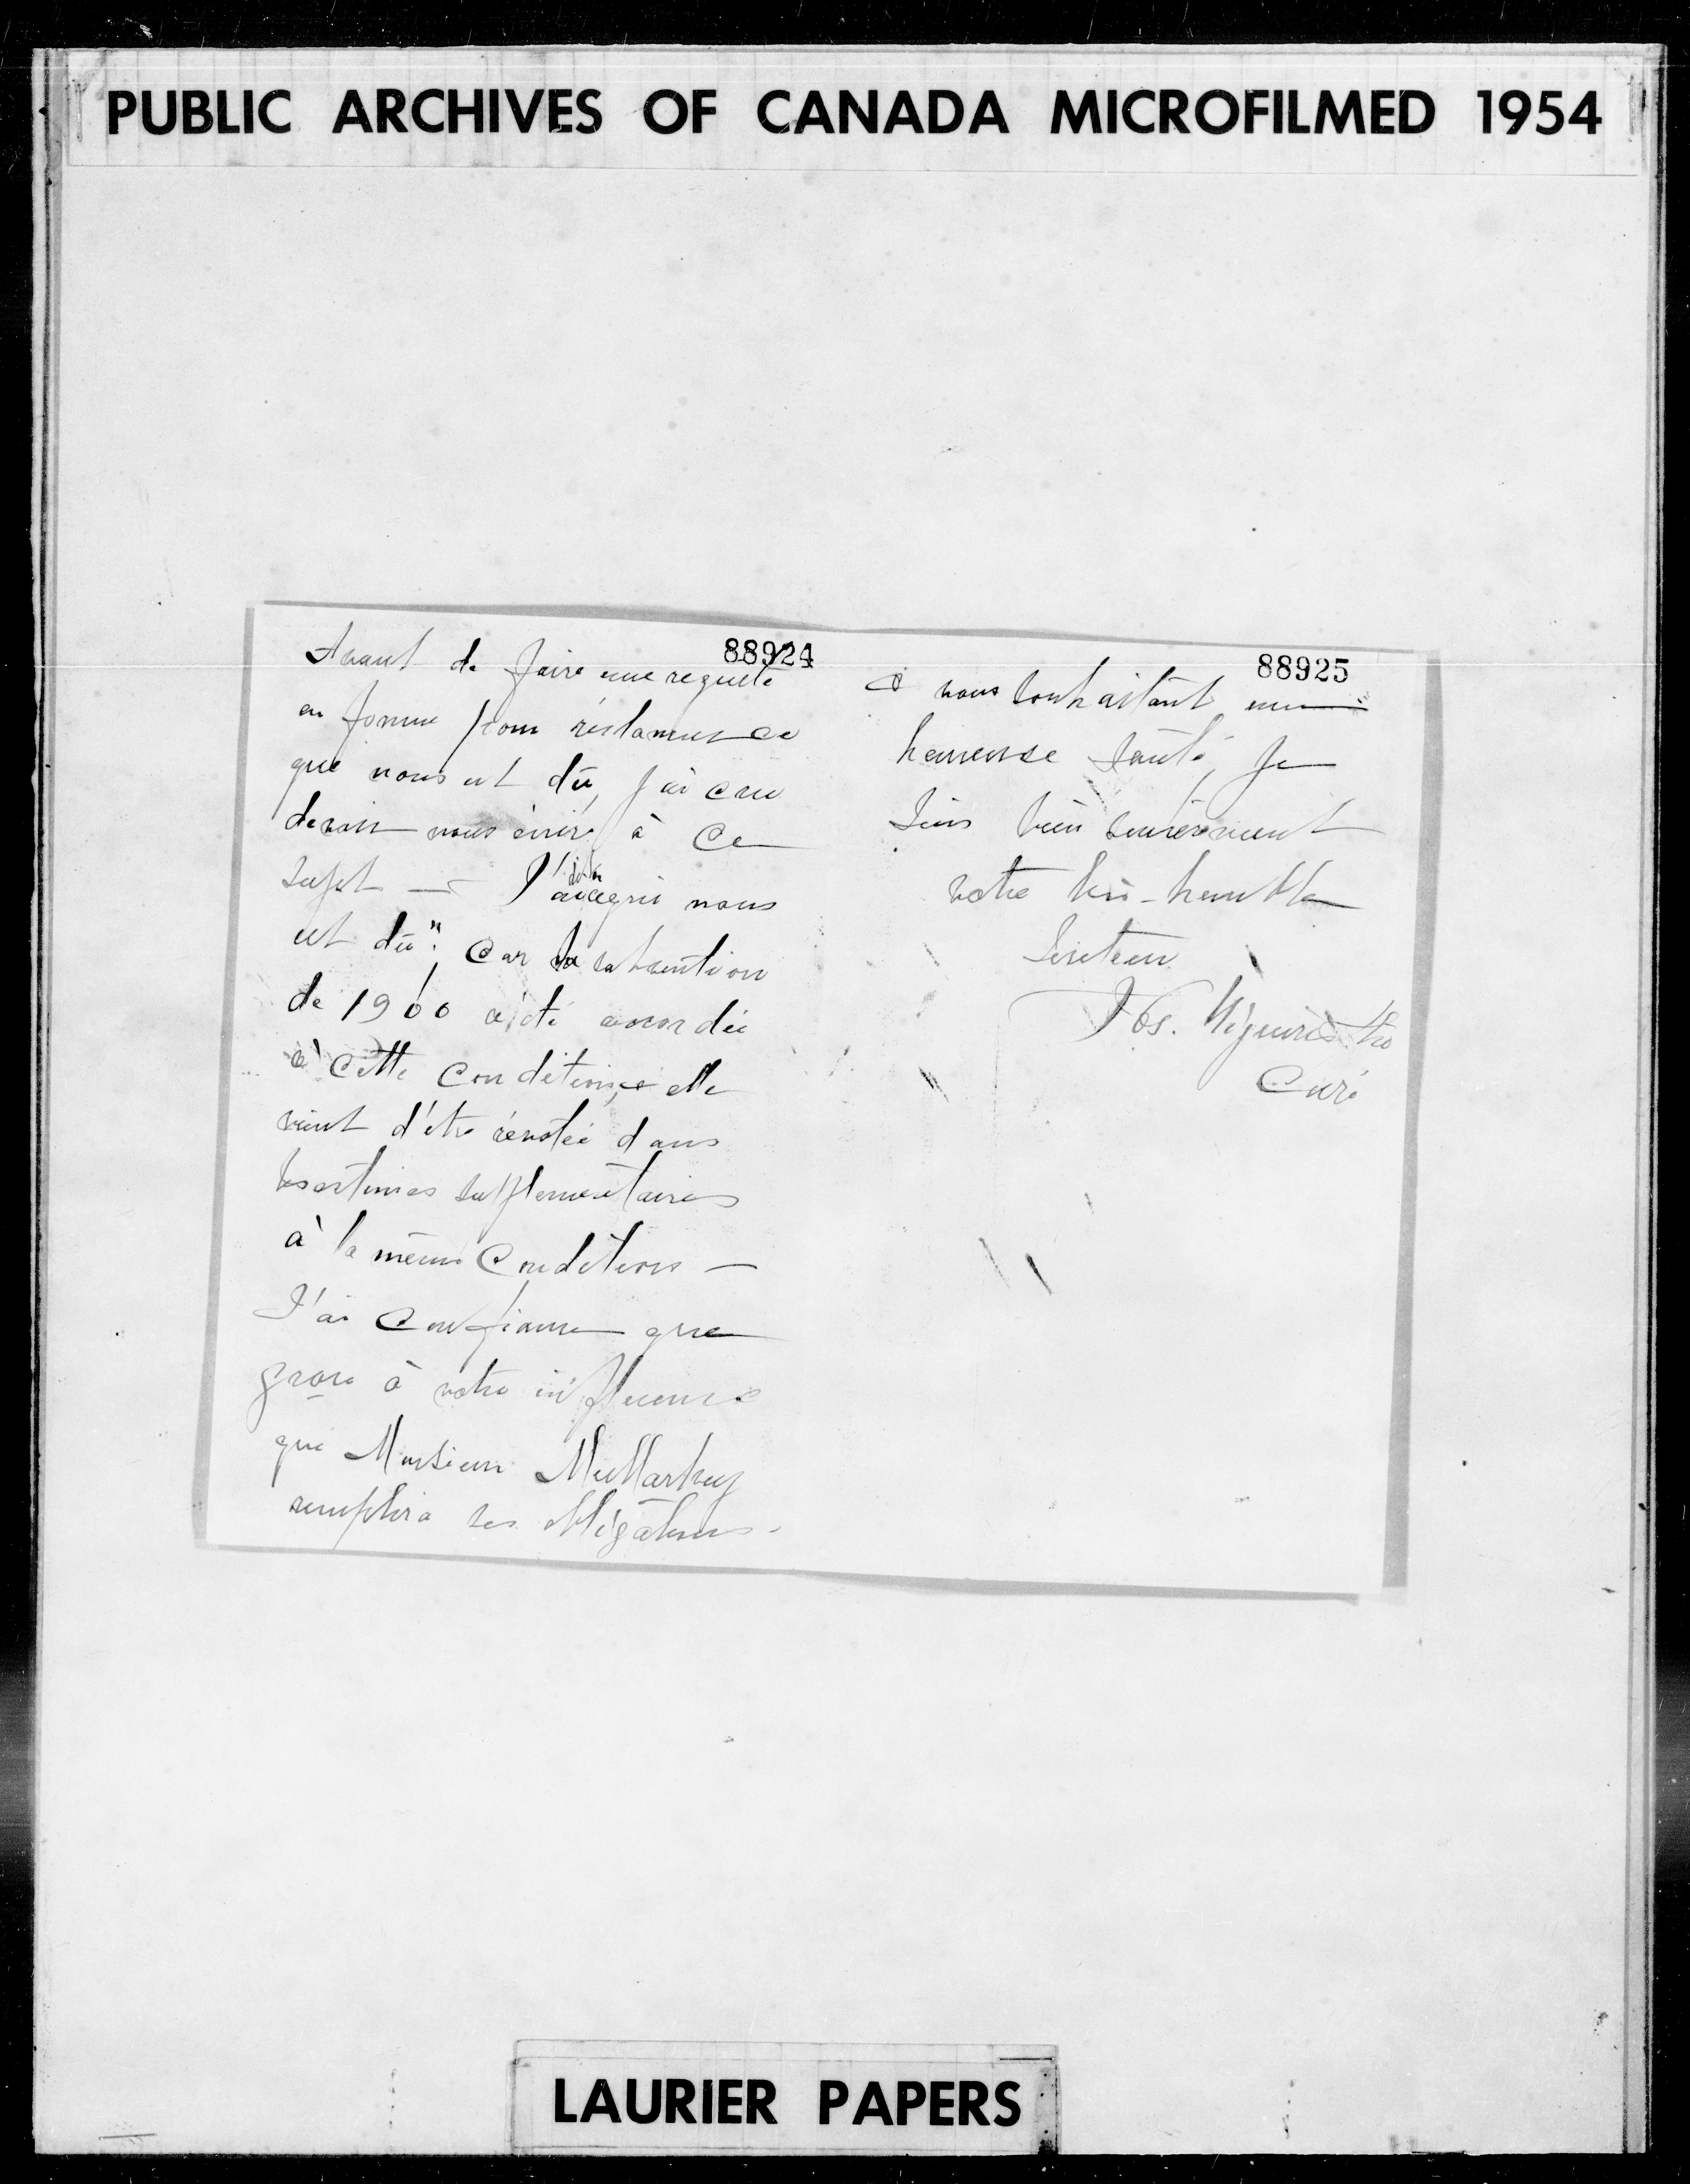 PUBLIC ARCHIVES OF CANADA MICROFILMED 1954
88924
Avant de faire une requête
en forme pour réclamer ce
que nous est dû, j'ai cru
devoir vous écrire à ce
sujet — J'ai dit "ce qui nous
est dû" car la subvention
de 1900 a été accordée
à cette condition, et elle
vient d'être révotée dans
les estimés supplementaires
à la même Condition —
J'ai Confiance que
grace à votre influence
que Monsieur Mullarkey
remplira ses obligations.
88925
et vous souhaitant une
heureuse santé, Je
Suis bien sincèrement
votre très-humble
Serviteur
Jos. Ptre
Curé
LAURIER PAPERS